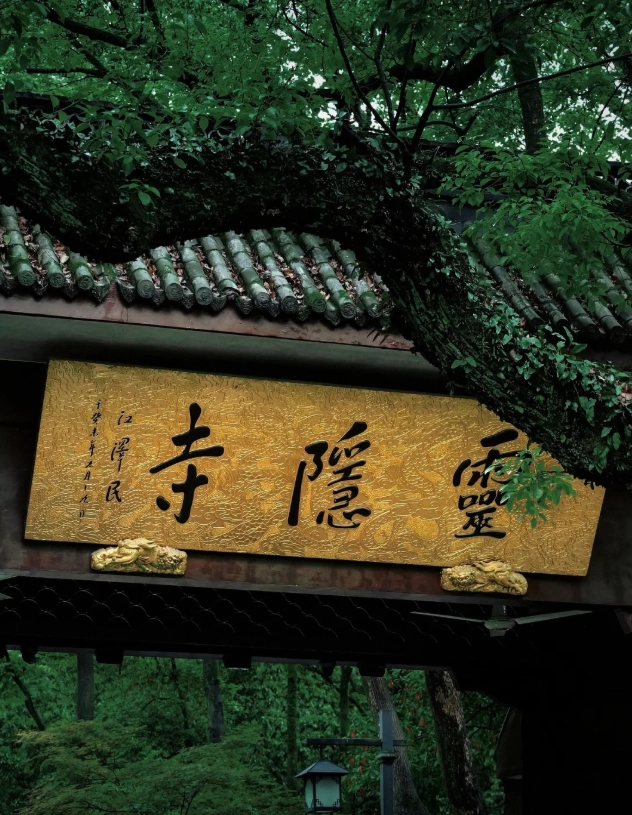 靈隱寺
江澤民